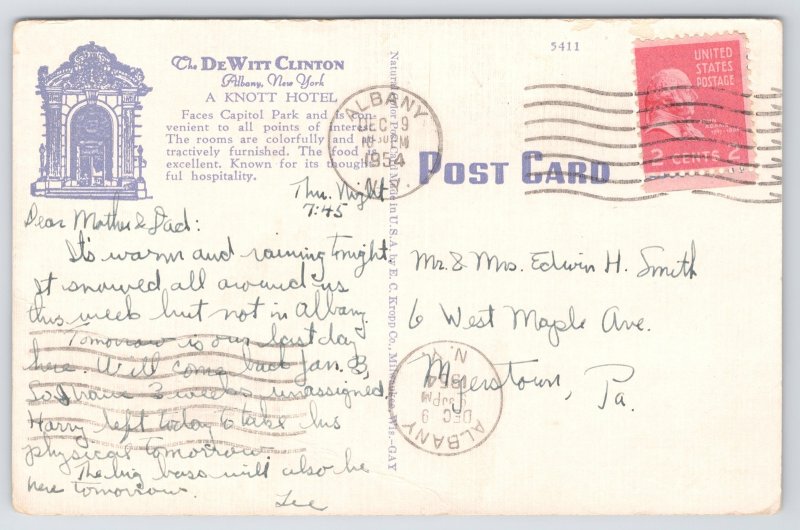 The DeWitt Clinton
Albany, New York
A KNOTT HOTEL
Faces Capitol Park and is con-
venient to all points of interest.
The rooms are colorfully and
tractively furnished. The food
excellent. Known for its thought-
ful hospitality.
5411
UNITED
STATES
POSTAGE
2 CENTS 2
ALBANY
DEC 9
PM
1954
POST CARD
Made in U.S.A. by E. C. Kropp Co., Milwaukee, Wis.-GAY
Thu. Night
7:45
Dear Mother & Dad:
It's warm and raining tonight
It snowed all around us
this week but not in Albany.
Tomorrow is our last day
here. Will come back Jan. 3,
So I have 3 weeks unassigned.
Harry left today to take his
physical tomorrow.
The big boss will also be
here tomorrow.
Lee
Mr. & Mrs. Edwin H. Smith
6 West Maple Ave.
Myerstown, Pa.
ALBANY
DEC 9
PM
1954
N.Y.